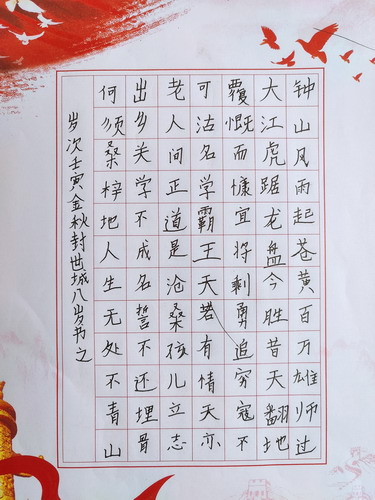 钟山风雨起苍黄百万雄师过
大江虎踞龙盘今胜昔天翻地
覆慨而慷宜将剩勇追穷寇不
可沽名学霸王天若有情天亦
老人间正道是沧桑孩儿立志
出乡关学不成名誓不还埋骨
何须桑梓地人生无处不青山
岁次壬寅金秋封世城八岁书之